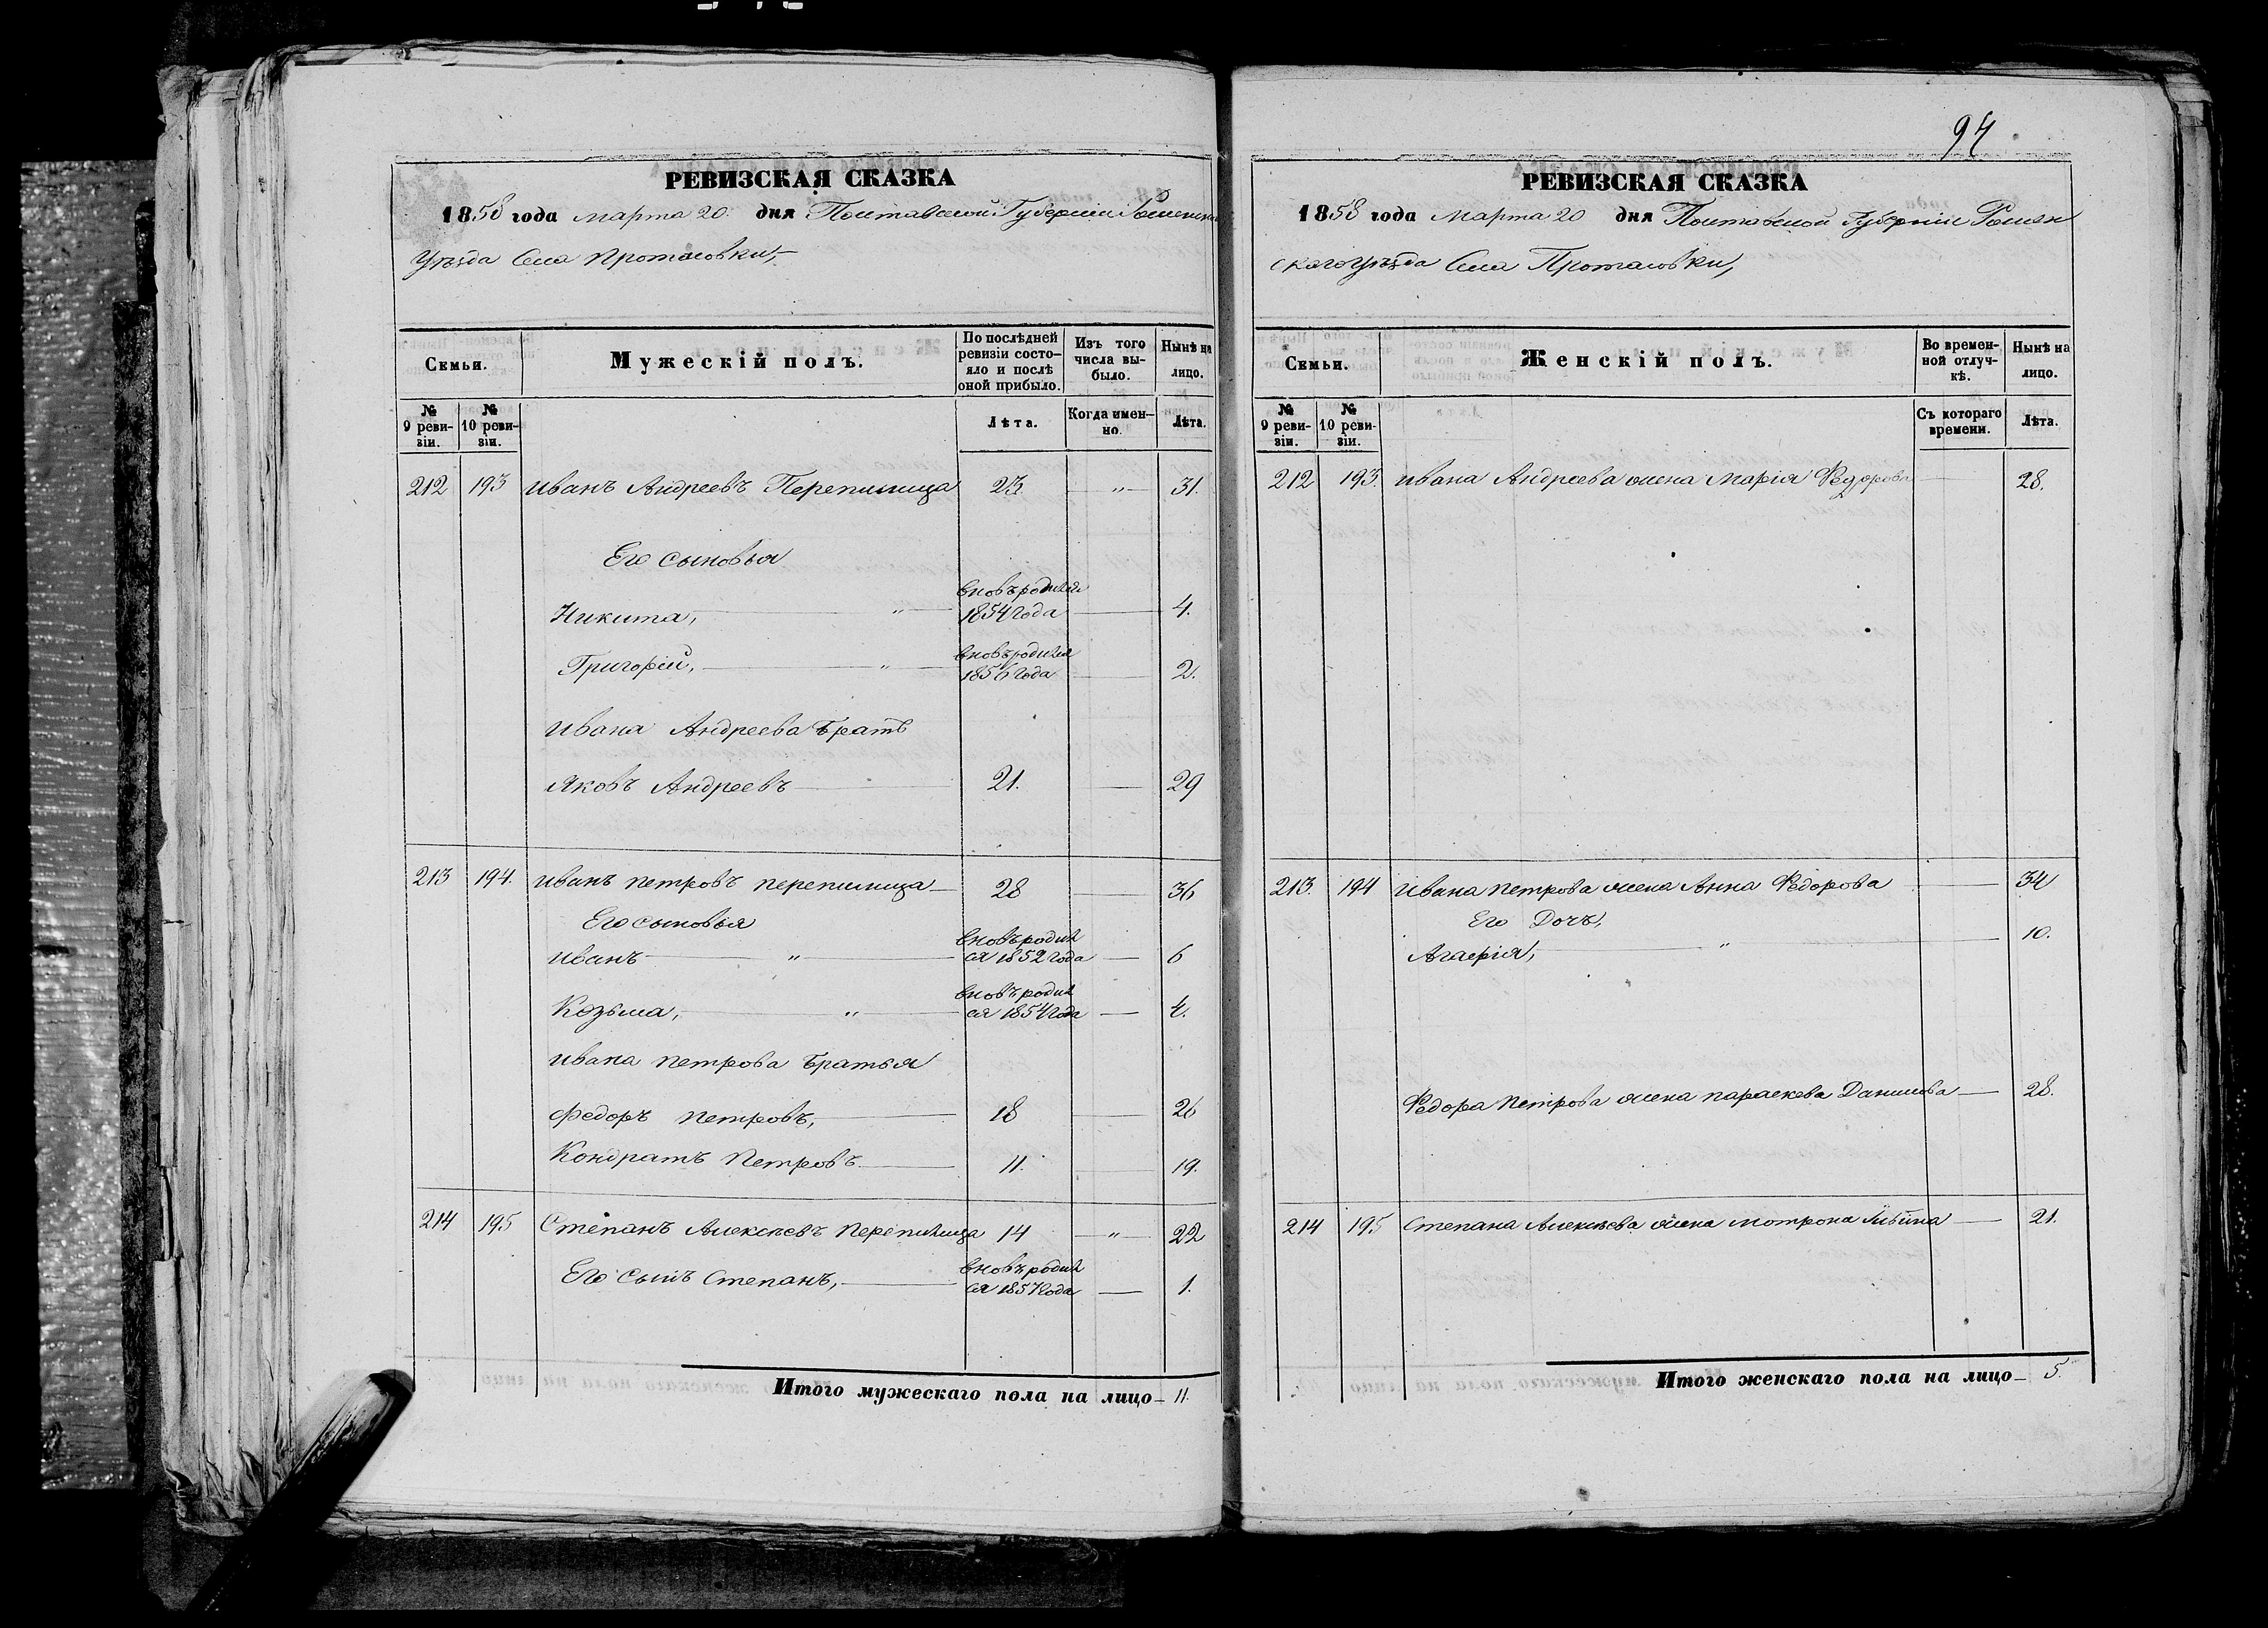 94
РЕВИЗСКАЯ СКАЗКА
1858 года марта 20 дня Полтавской Губерніи Роменскаго
Уѣзда Села Протасовки,
Семьи.
Мужескій полъ.
По послѣдней ревизіи состояло и послѣ оной прибыло.
Изъ того числа выбыло.
Нынѣ на лицо.
№ 9 ревизіи.
№ 10 ревизіи.
Лѣта.
Когда именно.
Лѣта.
212 193 Иванъ Андреевъ Перепилица 23 — " — 31.
Его сыновья
Никита, " вновь родился 1854 года — 4.
Григорій, " вновь родился 1856 года — 2.
Ивана Андреева братъ
Яковъ Андреевъ — 21. — 29
213 194. Иванъ Петровъ Перепилица — 28 — 36
Его сыновья
Иванъ " вновь родился 1852 года — 6
Козьма, " вновь родился 1854 года — 4.
Ивана Петрова братья
Федоръ Петровъ, — 18 — 26
Кондратъ Петровъ — 11. — 19.
214 195 Степанъ Алексѣевъ Перепилица 14 — " — 22
Его сынъ Степанъ, — вновь родился 1857 года — 1.
Итого мужескаго пола на лицо — 11.
РЕВИЗСКАЯ СКАЗКА
1858 года Марта 20 дня Полтавской Губерніи Ромен
скаго Уѣзда Села Протасовки,
Семьи.
Женскій полъ.
Во временной отлучкѣ.
Нынѣ на лицо.
№ 9 ревизіи.
№ 10 ревизіи.
Съ котораго времени.
Лѣта.
212 193. Ивана Андреева жена Марія Федорова — 28.
213. 194 Ивана Петрова жена Анна Федорова — 34
Его Дочь,
Агафія, " — 10.
Федора Петрова жена Параскева Данилова — 28.
214 195 Степана Алексѣева жена Мотрона — 21.
Итого женскаго пола на лицо — 5.